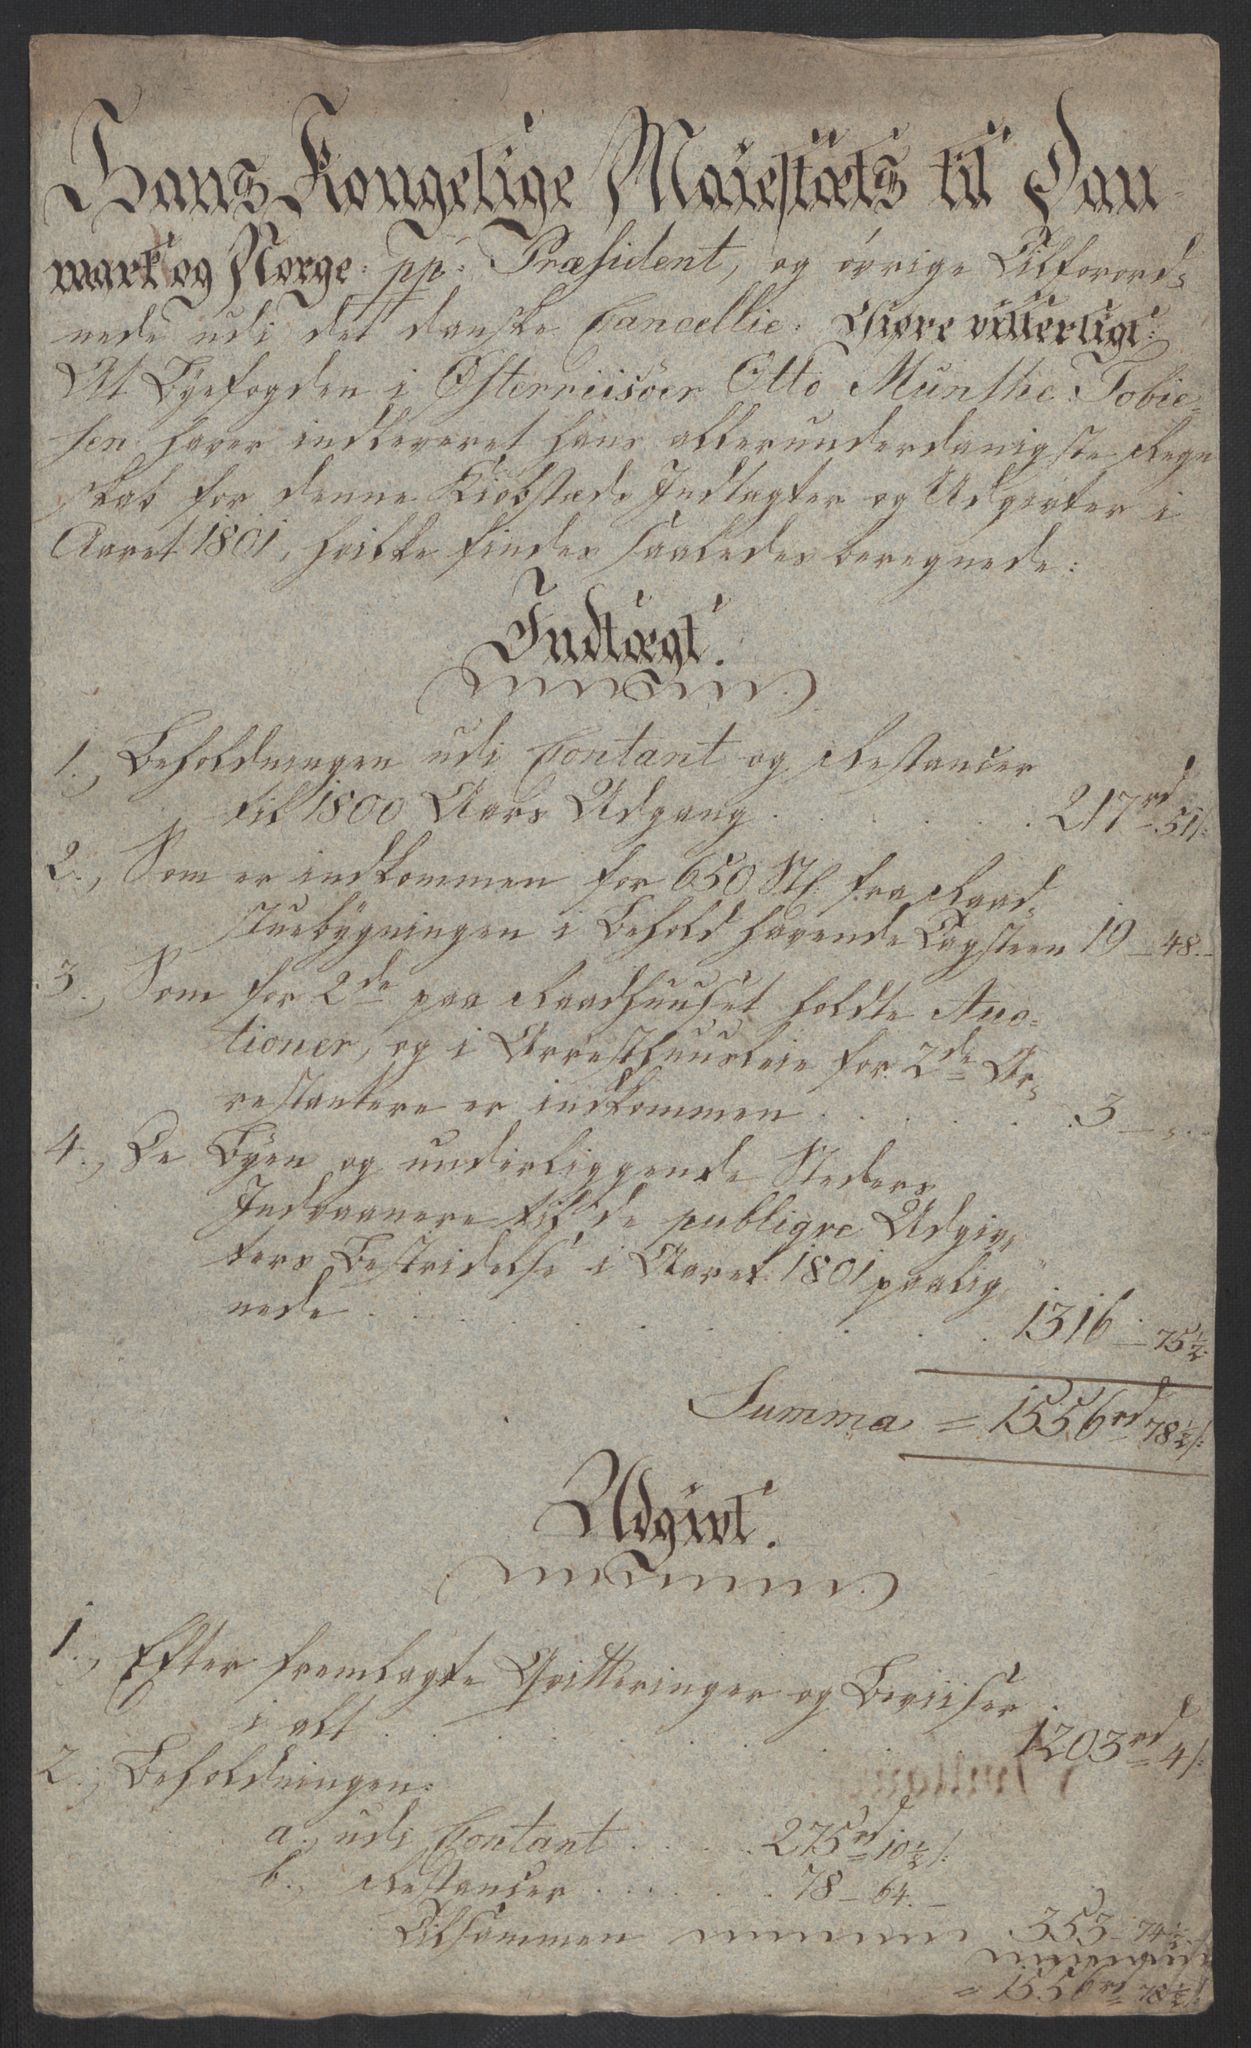 Hans Kongelige Maiestæts til Dan-
mark og Norge: pp: Præsident, og øvrige Tilforord-
nede udi det danske Cancellie: Giøre vitterligt:
At Byefogden i Østerriisöer Otto Munthe Tobie-
sen haver indleveret hans allerunderdanigste Regn
skab for denne Kiøbstæds Indtægter og Udgivter i
Aaret 1801, hvilke findes saaledes beregnede:
Indtægt.
1., Beholdningen udi Contant og Restancer
til 1800 Aars Udgang . . . . . . 217rd 51/:
2., Som er indkommen for 650 St: fra Raad-
stuebygningen i Behold havende Tagsteen 19 — 48. —
3., Som for 2de paa Raadhuuset holdte Auc-
tioner, og i Arresthuusleie for 2de Ar-
restantere er indkommen . . . . . 3 — „ . —
4., De Byen og underliggende Steders
Indvaanere til de publiqve Udgiv-
ters Bestridelse i Aaret 1801 paalig-
nede . . . . . . . . 1316 — 75½.
Summa = 1556rd 78½/:
Udgivt.
1., Efter fremlagte Qvitteringer og Beviiser
i alt . . . . . . . . 1203rd 4/:
2., Beholdningen:
a., udi Contant . . . 275rd 10½/:
b., Restancer . . . . . 78 — 64. —
Tilsammen 353 — 74½
= 1556rd 78½/: